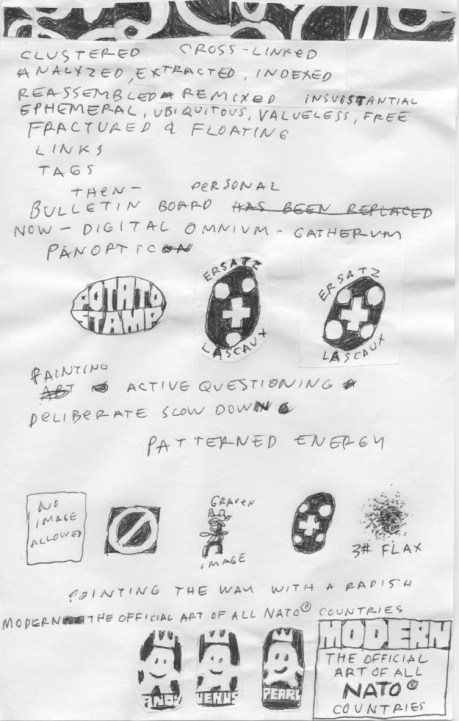 CLUSTERED CROSS-LINKED
ANALYZED, EXTRACTED, INDEXED
REASSEMBLED REMIXED INSUBSTANTIAL
EPHEMERAL, UBIQUITOUS, VALUELESS, FREE
FRACTURED & FLOATING
LINKS
TAGS
THEN- PERSONAL
BULLETIN BOARD HAS BEEN REPLACED
NOW - DIGITAL OMNIUM-GATHERUM
PANOPTICON
POTATO
STAMP
ERSATZ
LASCAUX
ERSATZ
LASCAUX
PAINTING
ART IS ACTIVE QUESTIONING &
DELIBERATE SLOW DOWN
PATTERNED ENERGY
NO
IMAGE
ALLOWED
GRAVEN
IMAGE
3# FLAX
POINTING THE WAY WITH A RADISH
MODERN THE OFFICIAL ART OF ALL NATO® COUNTRIES
ANDY
VENUS
PEARL
MODERN
THE OFFICIAL
ART OF ALL
NATO®
COUNTRIES